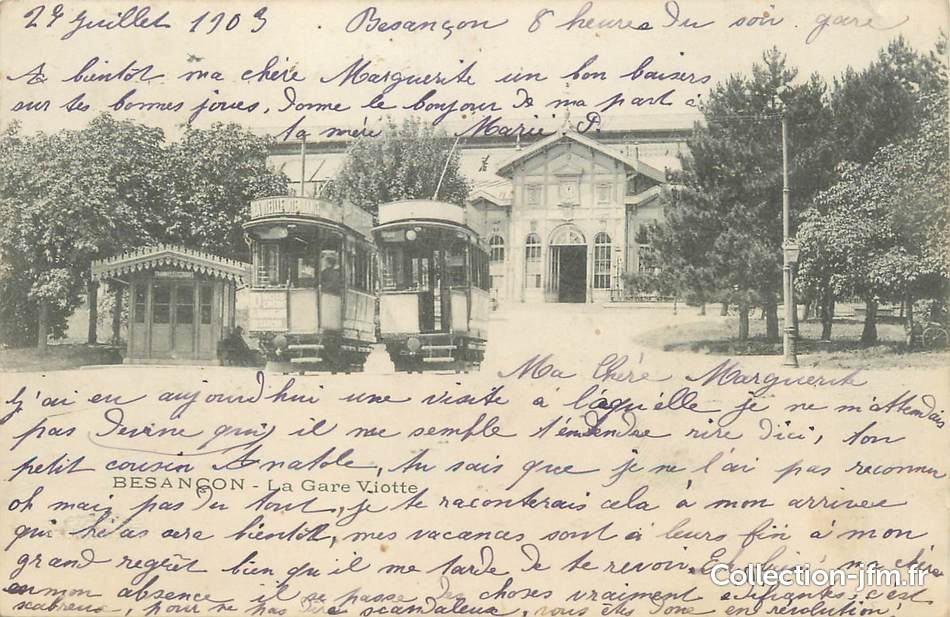 29 Juillet 1903 Besançon 8 heures du soir gare
A bientôt ma chère Marguerite un bon baisers
sur tes bonnes joues, donne le bonjour de ma part à
ta mère Marie P.
Ma Chère Marguerite
J'ai eu aujourd'hui une visite à laquelle je ne m'attendais
pas devine qui, il me semble t'endendre rire d'ici, ton
petit cousin Anatole, tu sais que je ne l'ai pas reconnu
BESANÇON - La Gare Viotte
oh mais pas du tout, je te raconterais cela à mon arrivée
qui hélas sera bientôt, mes vacances sont à leurs fin à mon
grand regrêt bien qu'il me tarde de te revoir. ma chère
en mon absence il se passe des choses vraiment édifiantes, c'est
scabreux, pour ne pas dire scandaleux, vous êtes donc en révolution!
Collection-jfm.fr